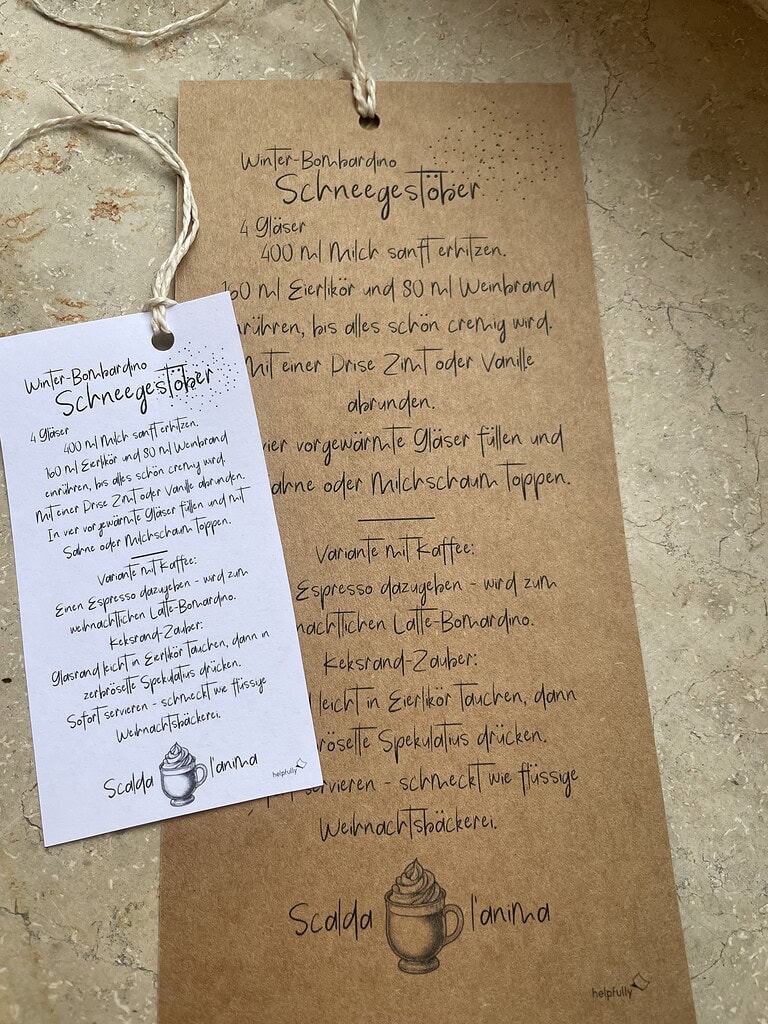 Winter-Bombardino
Schneegestöber
4 Gläser
400 ml Milch sanft erhitzen.
160 ml Eierlikör und 80 ml Weinbrand
einrühren, bis alles schön cremig wird.
Mit einer Prise Zimt oder Vanille abrunden.
In vier vorgewärmte Gläser füllen und mit
Sahne oder Milchschaum toppen.
Variante mit Kaffee:
Einen Espresso dazugeben - wird zum
weihnachtlichen Latte-Bomardino.
Keksrand-Zauber:
Glasrand leicht in Eierlikör tauchen, dann in
zerbröselte Spekulatius drücken.
Sofort servieren - schmeckt wie flüssige
Weihnachtsbäckerei.
Scalda l'anima
helpfully
Winter-Bombardino
Schneegestöber
4 Gläser
400 ml Milch sanft erhitzen.
160 ml Eierlikör und 80 ml Weinbrand
nrühren, bis alles schön cremig wird.
Mit einer Prise Zimt oder Vanille
abrunden.
vier vorgewärmte Gläser füllen und
ahne oder Milchschaum toppen.
Variante mit Kaffee:
Espresso dazugeben - wird zum
nachtlichen Latte-Bomardino.
Keksrand-Zauber:
leicht in Eierlikör tauchen, dann
röselte Spekulatius drücken.
servieren - schmeckt wie flüssige
Weihnachtsbäckerei.
Scalda l'anima
helpfully